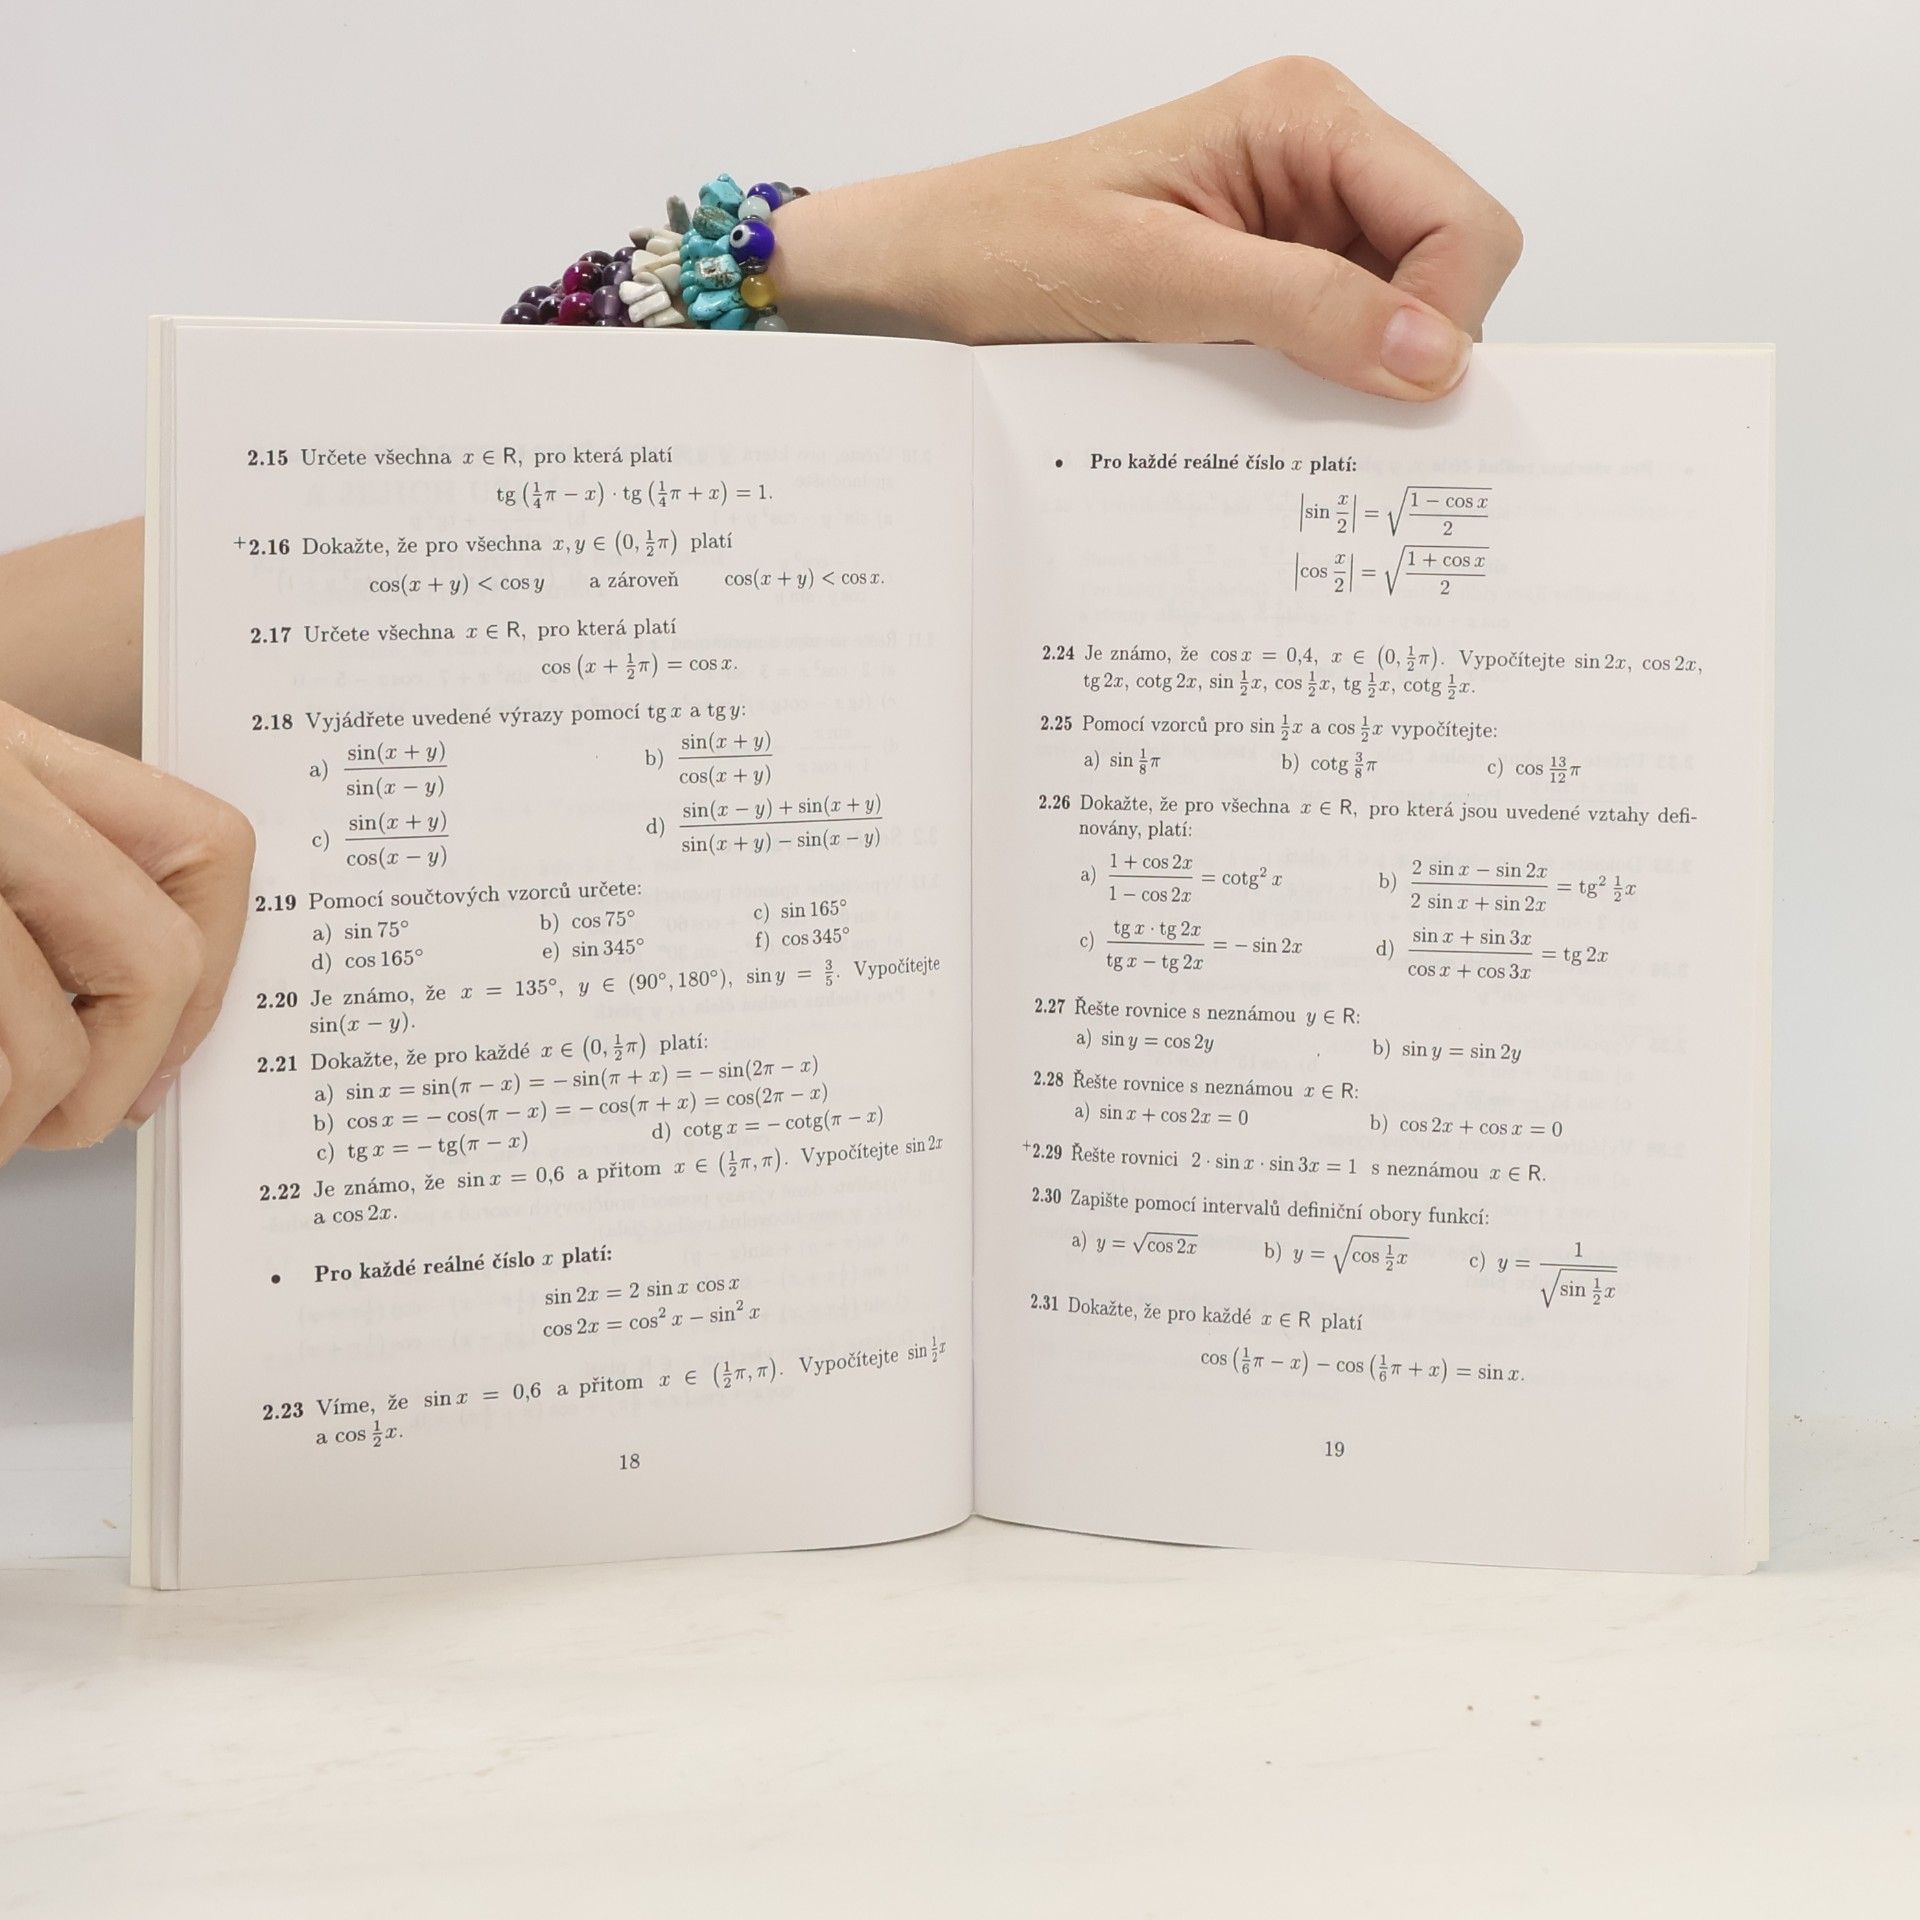 2.15 Určete všechna x ∈ R, pro která platí
tg (1/4 π − x) · tg (1/4 π + x) = 1.
+2.16 Dokažte, že pro všechna x, y ∈ (0, 1/2 π) platí
cos(x + y) < cos y a zároveň cos(x + y) < cos x.
2.17 Určete všechna x ∈ R, pro která platí
cos (x + 1/2 π) = cos x.
2.18 Vyjádřete uvedené výrazy pomocí tg x a tg y:
a) sin(x + y) / sin(x − y) b) sin(x + y) / cos(x + y)
c) sin(x + y) / cos(x − y) d) sin(x − y) + sin(x + y) / sin(x + y) − sin(x − y)
2.19 Pomocí součtových vzorců určete:
a) sin 75° b) cos 75° c) sin 165°
d) cos 165° e) sin 345° f) cos 345°
2.20 Je známo, že x = 135°, y ∈ (90°, 180°), sin y = 3/5. Vypočítejte
sin(x − y).
2.21 Dokažte, že pro každé x ∈ (0, 1/2 π) platí:
a) sin x = sin(π − x) = − sin(π + x) = − sin(2π − x)
b) cos x = − cos(π − x) = − cos(π + x) = cos(2π − x)
c) tg x = − tg(π − x) d) cotg x = − cotg(π − x)
2.22 Je známo, že sin x = 0,6 a přitom x ∈ (1/2 π, π). Vypočítejte sin 2x
a cos 2x.
• Pro každé reálné číslo x platí:
sin 2x = 2 sin x cos x
cos 2x = cos² x − sin² x
2.23 Víme, že sin x = 0,6 a přitom x ∈ (1/2 π, π). Vypočítejte sin 1/2 x
a cos 1/2 x.
18
• Pro každé reálné číslo x platí:
|sin x/2| = √(1 − cos x / 2)
|cos x/2| = √(1 + cos x / 2)
2.24 Je známo, že cos x = 0,4, x ∈ (0, 1/2 π). Vypočítejte sin 2x, cos 2x,
tg 2x, cotg 2x, sin 1/2 x, cos 1/2 x, tg 1/2 x, cotg 1/2 x.
2.25 Pomocí vzorců pro sin 1/2 x a cos 1/2 x vypočítejte:
a) sin 1/8 π b) cotg 3/8 π c) cos 13/12 π
2.26 Dokažte, že pro všechna x ∈ R, pro která jsou uvedené vztahy defi-
novány, platí:
a) 1 + cos 2x / 1 − cos 2x = cotg² x b) 2 sin x − sin 2x / 2 sin x + sin 2x = tg² 1/2 x
c) tg x · tg 2x / tg x − tg 2x = − sin 2x d) sin x + sin 3x / cos x + cos 3x = tg 2x
2.27 Řešte rovnice s neznámou y ∈ R:
a) sin y = cos 2y b) sin y = sin 2y
2.28 Řešte rovnice s neznámou x ∈ R:
a) sin x + cos 2x = 0 b) cos 2x + cos x = 0
+2.29 Řešte rovnici 2 · sin x · sin 3x = 1 s neznámou x ∈ R.
2.30 Zapište pomocí intervalů definiční obory funkcí:
a) y = √cos 2x b) y = √cos 1/2 x c) y = 1 / √sin 1/2 x
2.31 Dokažte, že pro každé x ∈ R platí
cos (1/6 π − x) − cos (1/6 π + x) = sin x.
19